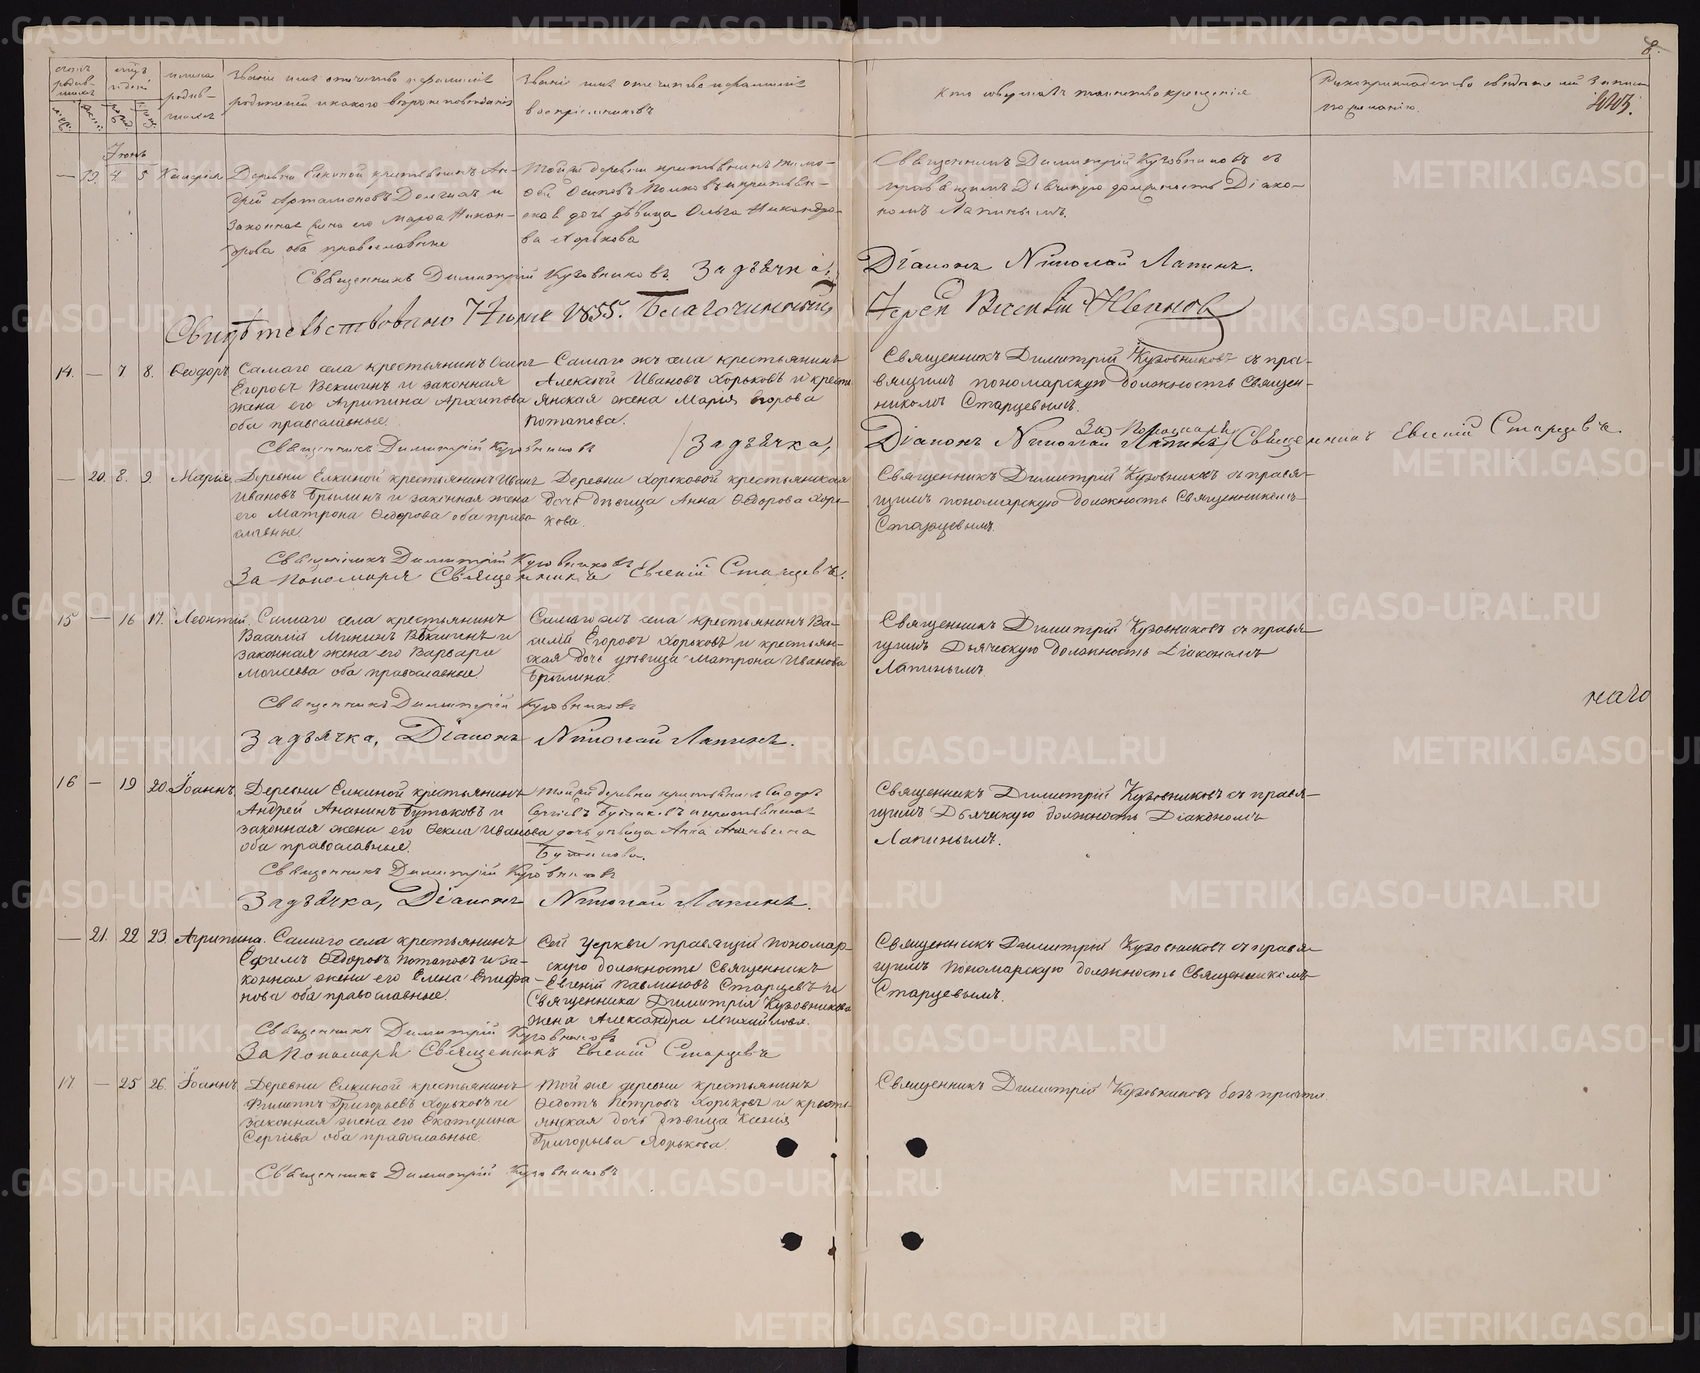 8.
счетъ родив-шихся
мѣсяцъ и день
имена родив-шихся
Званіе имя отчество и фамилія
родителей и какого вѣроисповеданія
Званіе имя отчество и фамилія
воспріемниковъ
Кто совершалъ таинство крещенія
Рукоприкладство свидетелей записи
по желанію.
Іюнь
— 19. 4 5
Деревни Елкиной крестьянинъ Ан-
дрей
законная жена его Марѳа Никан-
дрова оба православные
Той же деревни крестьянинъ Тимо-
ѳей Осиповъ и крестьян-
ская дочь дѣвица Ольга Никандро-
ва Хорькова
Священникъ Димитрій Кузовниковъ съ
правящимъ Дьячкую должность Діако-
номъ Лапинымъ.
Священникъ Димитрій Кузовниковъ. За дьячка,
Діаконъ Николай Лапинъ.
Свидѣтельствовано 7 Іюня 1855. Благочинный
Іерей Василій Ивановъ
14. — 7 8. Ѳеодоръ
Самаго села крестьянинъ Осипъ
Егоровъ Векшинъ и законная
жена его Агрипина Архипова
оба православные.
Самаго жъ села крестьянинъ
Алексѣй Ивановъ Хорьковъ и кресть
янская жена Марія Егорова
Потапова.
Священникъ Димитрій Кузовниковъ съ пра-
вящимъ пономарскую должность Священ-
никомъ Старцевымъ.
Священникъ Димитрій Кузовниковъ
За дьячка,
Діаконъ Николай Лапинъ,
За Пономаря Священникъ Евгеній Старцевъ.
— 20. 8. 9 Марія.
Деревни Елкиной крестьянинъ Иванъ
Ивановъ Брылинъ и законная жена
его Матрона Ѳедорова оба право
славные.
Деревни Хорьковой крестьянская
дочь дѣвица Анна Ѳедорова Хорь-
кова.
Священникъ Димитрій Кузовниковъ съ правя-
щимъ пономарскую должность Священникомъ
Старцевымъ.
Священникъ Димитрій Кузовниковъ
За Пономаря Священникъ Евгеній Старцевъ.
15 — 16 17. Леонтій.
Самаго села крестьянинъ
Василій Мининъ Векшинъ и
законная жена его Варвара
Моисеева оба православные.
Самаго жъ села крестьянинъ Ва-
силій Егоровъ Хорьковъ и крестьян-
ская дочь дѣвица Матрона Иванова
Брылина.
Священникъ Димитрій Кузовниковъ съ правя-
щимъ Дьяческую должность Діакономъ
Лапинымъ.
Священникъ Димитрій Кузовниковъ
За дьячка, Діаконъ Николай Лапинъ.
16 — 19 20. Іоаннъ.
Деревни Елкиной крестьянинъ
Андрей Ананинъ Бутаковъ и
законная жена его Ѳекла Иванова
оба православные.
Той же деревни крестьянинъ
Сергѣевъ Бутаковъ и крестьянская
дочь дѣвица Анна Ананьина
Бутакова.
Священникъ Димитрій Кузовниковъ съ правя-
щимъ Дьяческую должность Діакономъ
Лапинымъ.
Священникъ Димитрій Кузовниковъ
За дьячка, Діаконъ Николай Лапинъ.
— 21. 22 23. Агрипина.
Самаго села крестьянинъ
Ефимъ Ѳедоровъ Потаповъ и за-
конная жена его Елена Епифа
нова оба православные.
Сей церкви правящій пономар-
скую должность Священникъ
Евгеній Павлиновъ Старцевъ и
Священника Димитрія Кузовникова
жена Александра Михайлова.
Священникъ Димитрій Кузовниковъ съ правя-
щимъ пономарскую должность Священникомъ
Старцевымъ.
Священникъ Димитрій Кузовниковъ
За Пономаря Священникъ Евгеній Старцевъ
17 — 25 26. Іоаннъ
Деревни Елкиной крестьянинъ
Филиппъ Григорьевъ Хорьковъ и
законная жена его Екатерина
Сергѣева оба православные.
Той же деревни крестьянинъ
Ѳедотъ Петровъ Хорьковъ и кресть-
янская дочь дѣвица Ксенія
Григорьева Хорькова.
Священникъ Димитрій Кузовниковъ безъ причта
Священникъ Димитрій Кузовниковъ
METRIKI.GASO-URAL.RU